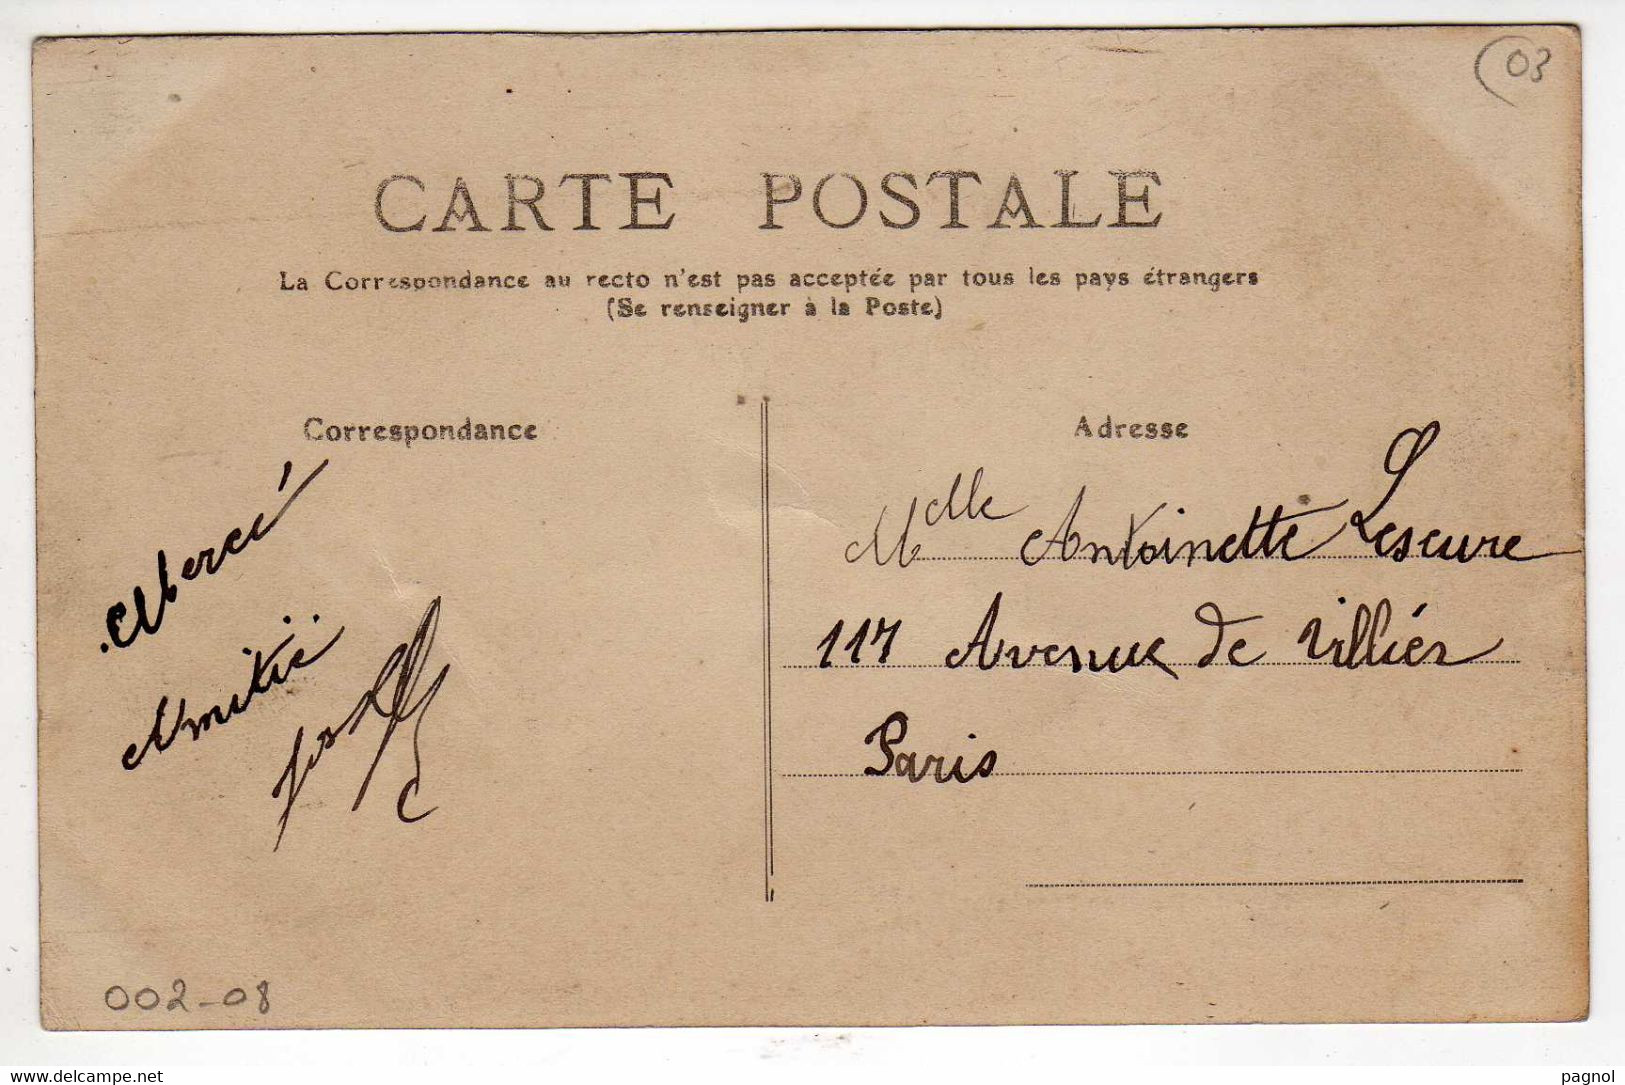 03
CARTE POSTALE
La Correspondance au recto n'est pas acceptée par tous les pays étrangers
(Se renseigner à la Poste)
Correspondance
Merci
Amitié
Adresse
Mlle Antoinette Lescure
117 Avenue de Villiers
Paris
002-08
www.delcampe.net
pagnol